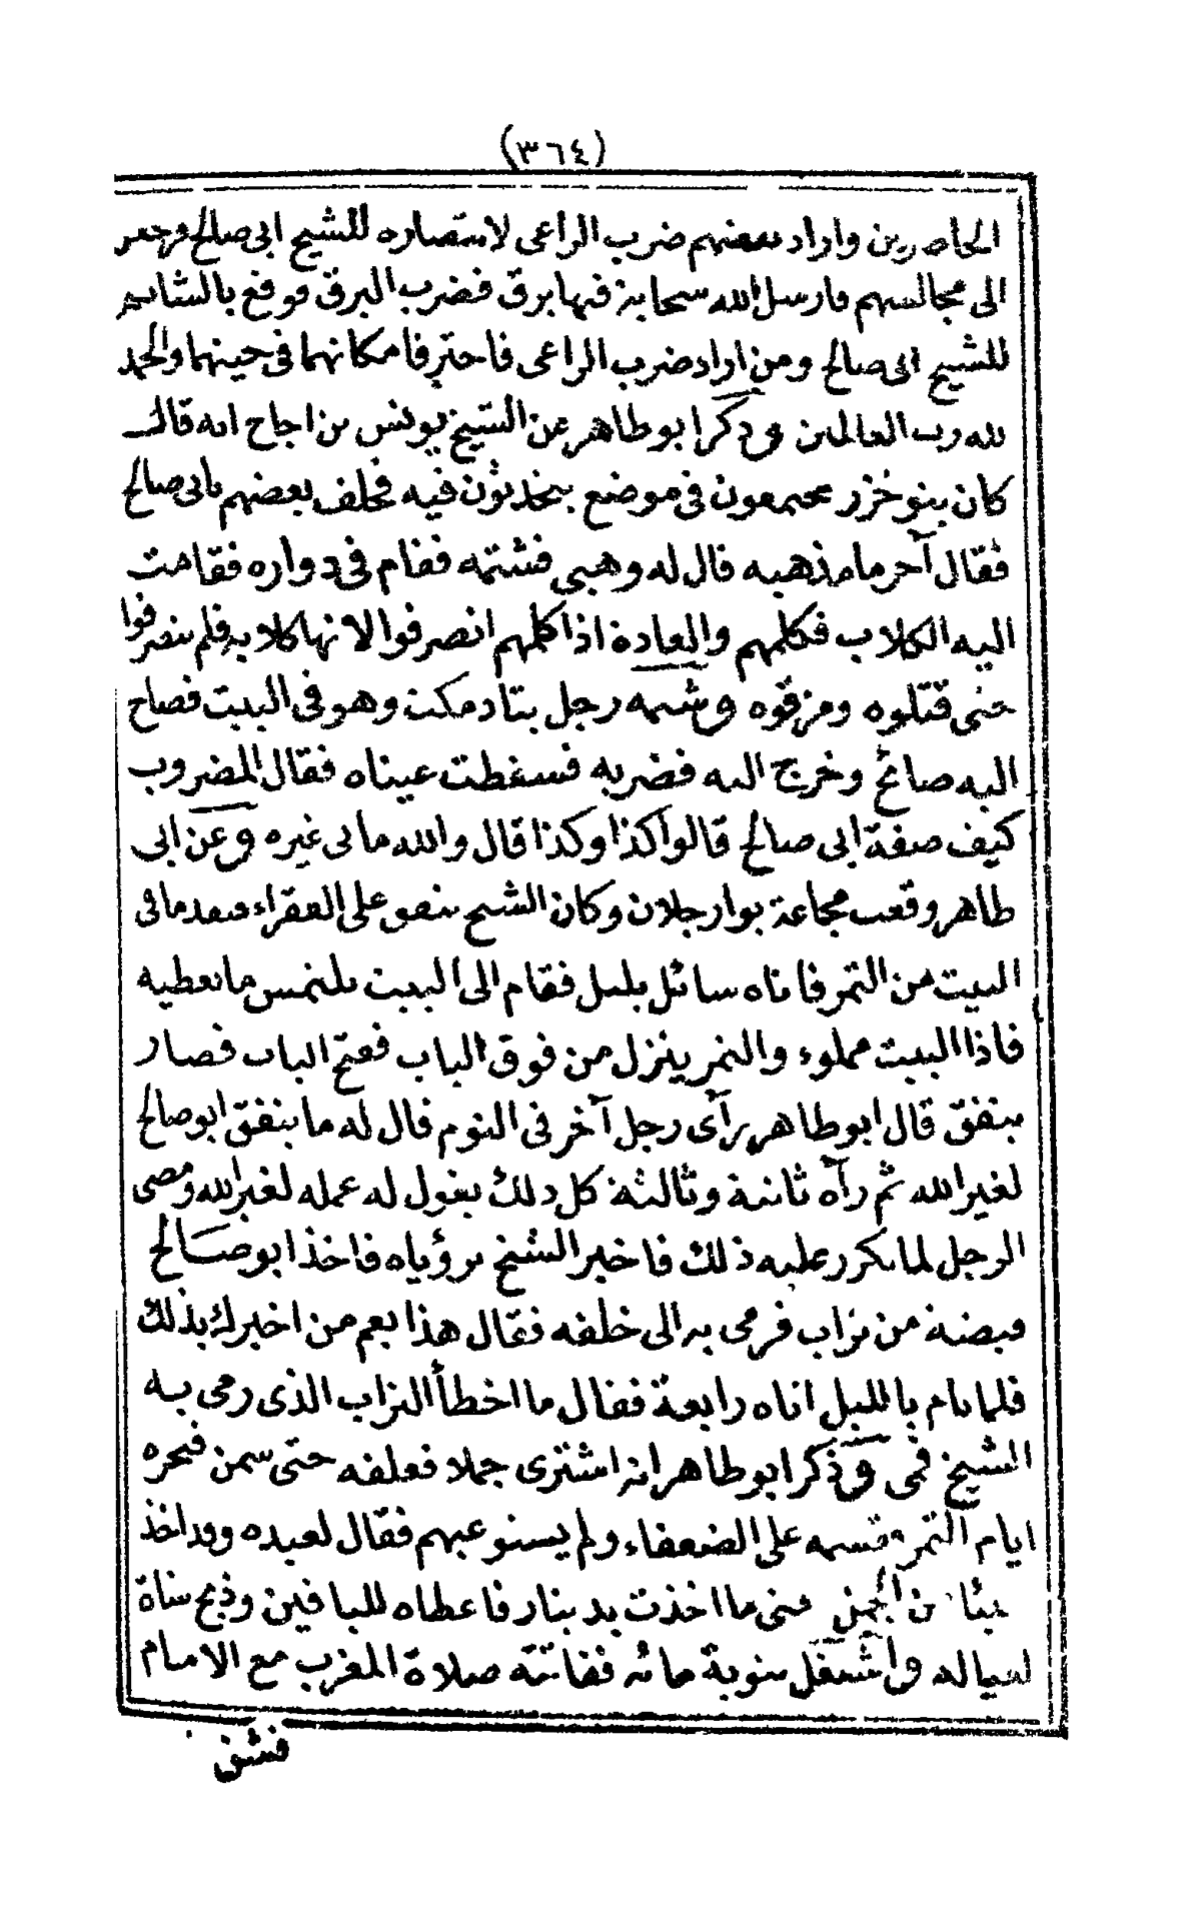 (٣٦٤)
الحاضرين واراد بعضهم ضرب الراعى لانتصاره للشيخ ابى صالح
الى مجالسهم فارسل الله سحابة فيها برق فضرب البرق فوقع بالشاتم
للشيخ ابى صالح ومن اراد ضرب الراعى فاحترقا مكانهما فى حينهما والحمد
لله رب العالمين وذكر ابو طاهر عن الشيخ يونس بن اجاح انه قال
كان بنو خزر مجتمعون فى موضع يتحدثون فيه فحلف بعضهم بابى صالح
فقال آخر ما مذهبه قال له وهبى فشتمه فقام فى دواره فقامت
اليه الكلاب فكلمهم والعادة اذا كلمهم انصرفوا لانها كلابه فلم ينصرفوا
حتى قتلوه ومزقوه وشتمه رجل بتادمكت وهو فى البيت فصاح
اليه صائح وخرج اليه فضربه فسقطت عيناه فقال المضروب
كيف صفة ابى صالح قالوا كذا وكذا قال والله ما بى غيره وعن ابى
طاهر وقعت مجاعة بوارجلان وكان الشيخ ينفق على الفقراء فنفد ما فى
البيت من التمر فاتاه سائل بليل فقام الى البيت يلتمس ما يعطيه
فاذا البيت مملوء والتمر ينزل من فوق الباب ففتح الباب فصار
ينفق قال ابو طاهر رأى رجل آخر فى النوم قال له ما ينفق ابو صالح
لغير الله ثم رآه ثانية وثالثة كل ذلك يقول له عمله لغير الله ومضى
الرجل لما تكرر عليه ذلك فاخبر الشيخ برؤياه فاخذ ابو صالح
قبضة من تراب فرمى به الى خلفه فقال هذا بفم من اخبرك بذلك
فلما نام بالليل اتاه رابعة فقال ما اخطأ التراب الذى رمى به
الشيخ فمى وذكر ابو طاهر انه اشترى جملا فعلفه حتى سمن فنحره
ايام التمر وقسمه على الضعفاء ولم يستوعبهم فقال لعبده وقد اخذ
شيئا من الجمل عنى ما اخذت بدينار فاعطاه للباقين وذبح شاة
لعياله واشتغل بنوبة مائه ففاتته صلاة المغرب مع الامام
فشق